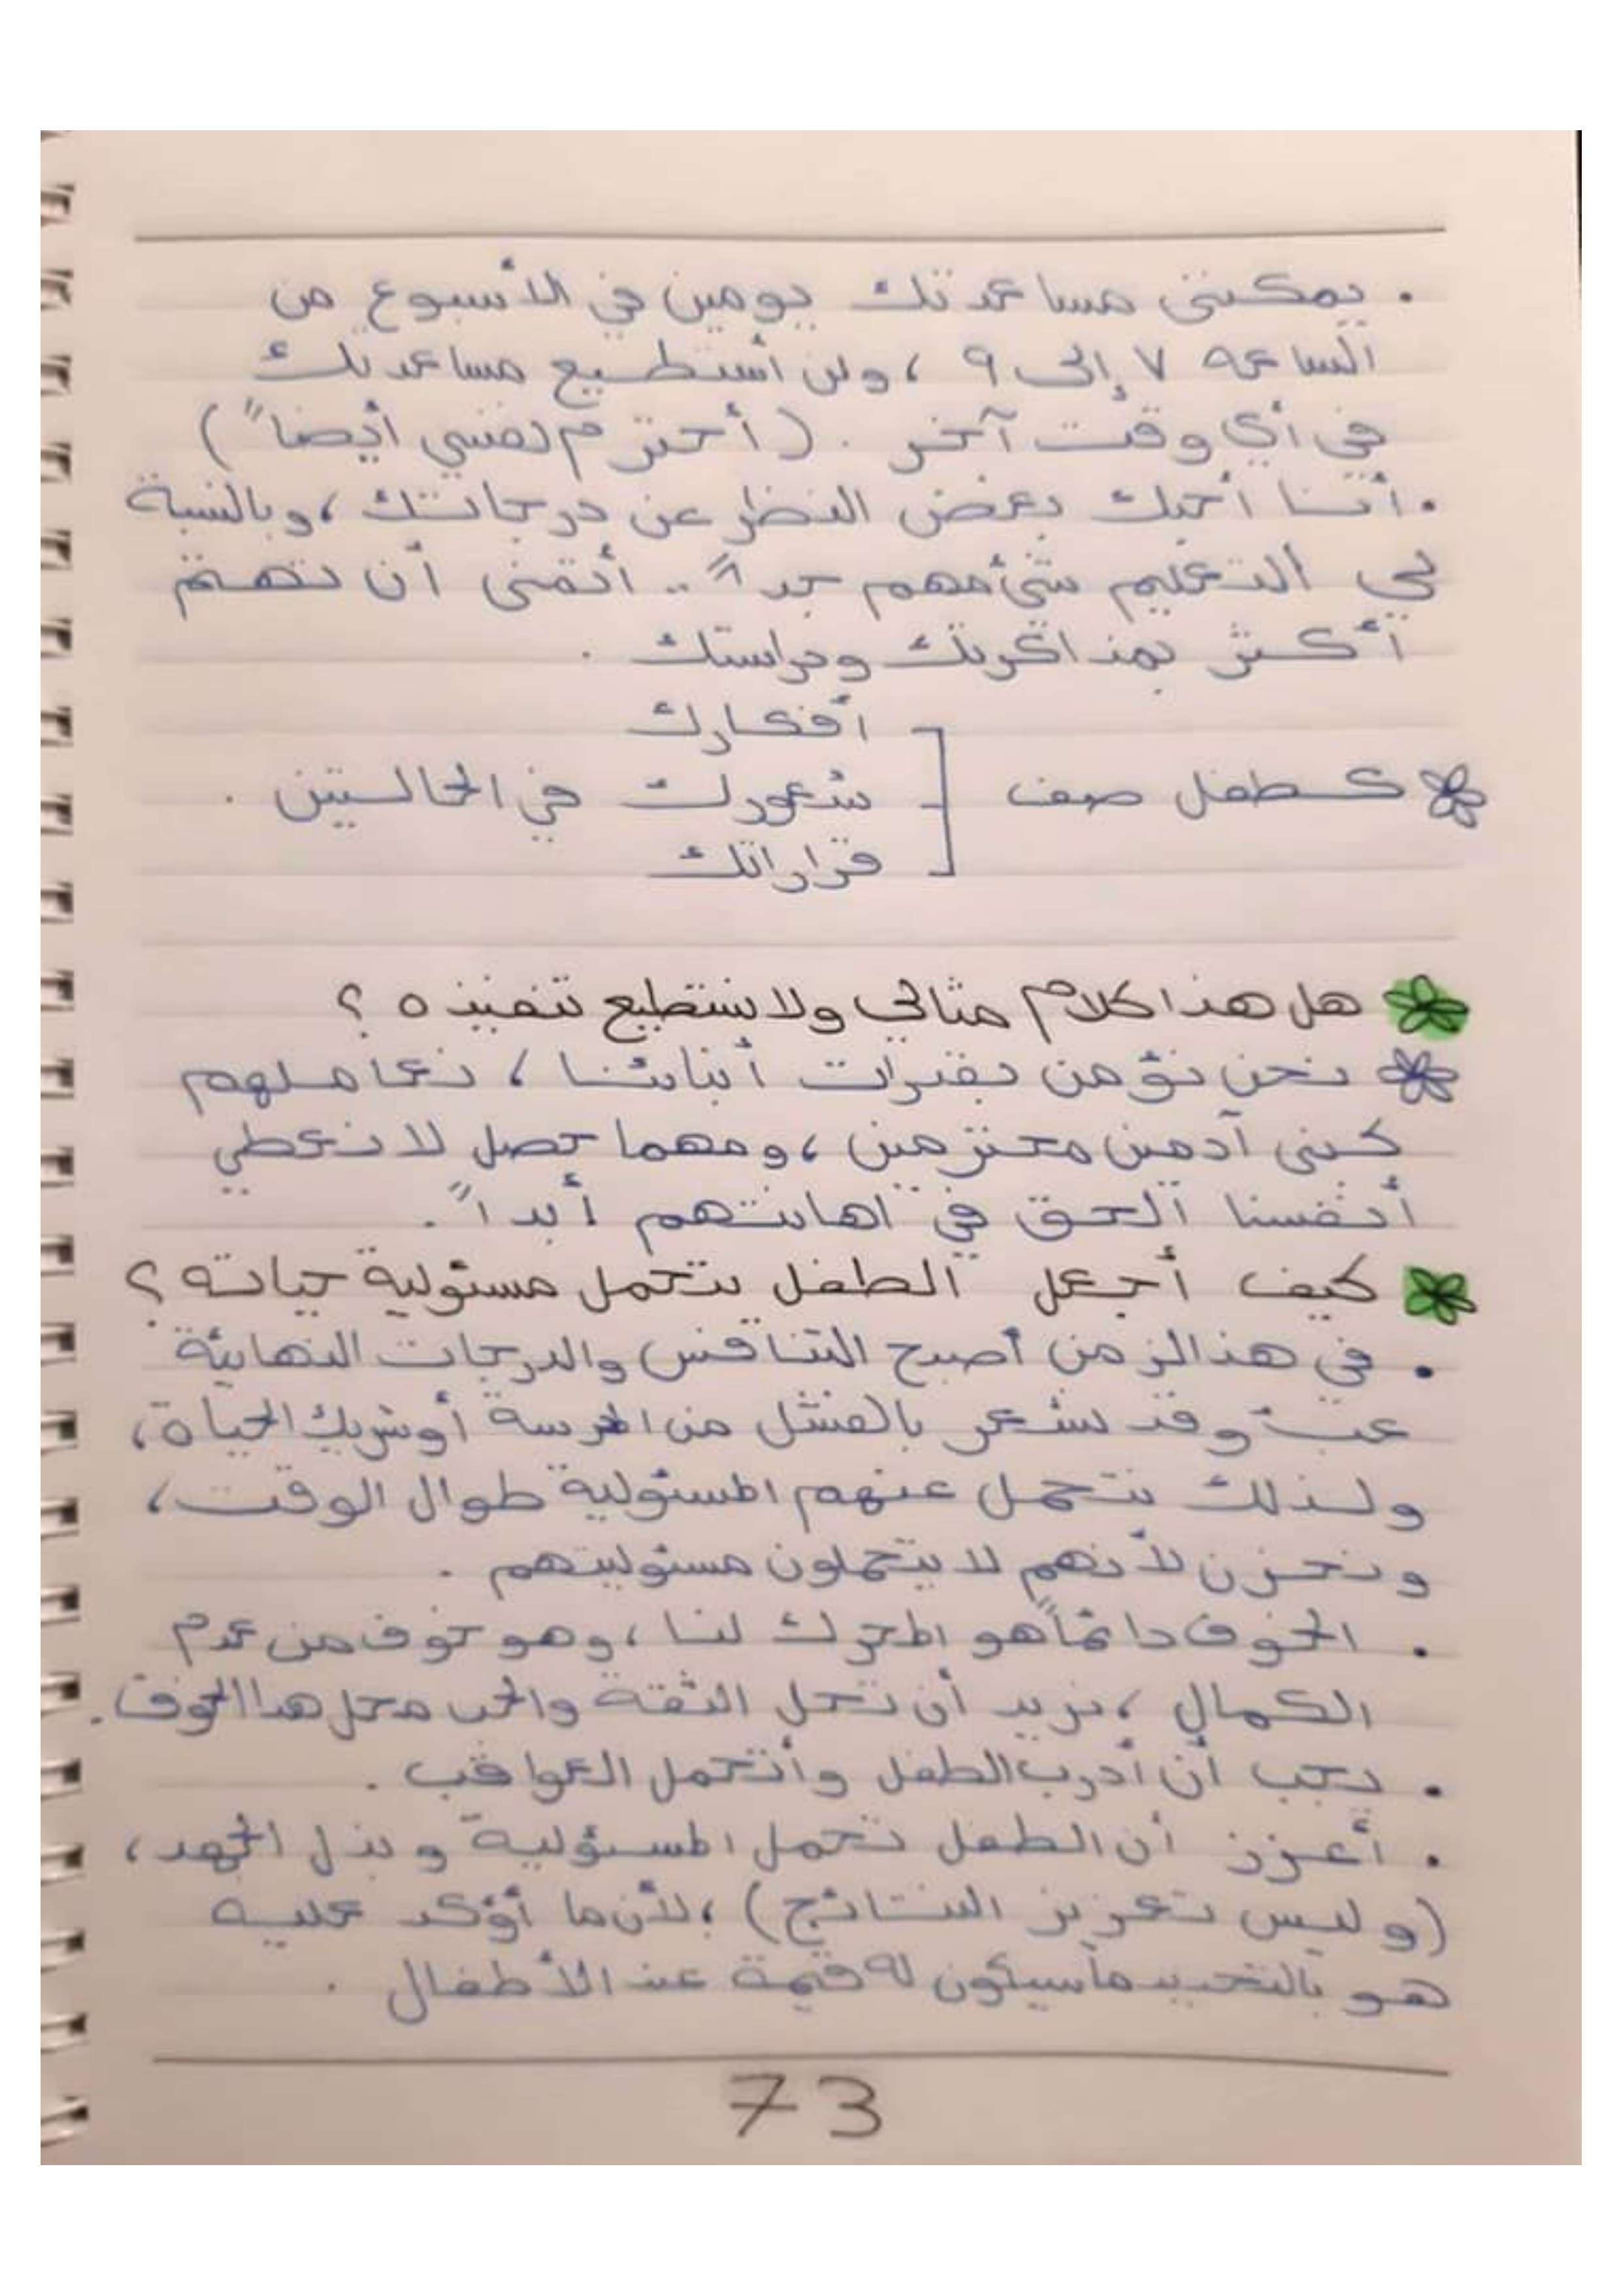 . يمكنني مساعدتك يومين في الأسبوع من
الساعه ٧ إلى ٩ ، ولن أستطيع مساعدتك
في أي وقت آخر . (أحترم نفسي أيضاً)
. أنا أحبك بغض النظر عن درجاتك ، وبالنسبة
لي التعليم شيء مهم جداً .. أتمنى أن تهتم
أكثر بمذاكرتك ودراستك .
أفكارك
كطفل صف شعورك في الحالتين .
قراراتك
هل هذا كلام مثالي ولا نستطيع تنفيذه ؟
نحن نؤمن بقدرات أبنائنا ، نعاملهم
كبنى آدمين محترمين ، ومهما حصل لا نعطي
أنفسنا الحق في اهانتهم أبداً .
كيف أجعل الطفل يتحمل مسئولية حياته ؟
. في هذا الزمن أصبح التنافس والدرجات النهائية
عبء وقد نشعر بالفشل من المدرسة أو شريك الحياة ،
ولذلك نتحمل عنهم المسئولية طوال الوقت ،
ونحزن لأنهم لا يتحملون مسئوليتهم .
. الخوف دائماً هو المحرك لنا ، وهو خوف من عدم
الكمال ، نريد أن تحل الثقة والحب محل هذا الخوف .
. يجب أن أدرب الطفل وأتحمل العواقب .
. أعزز أن الطفل تحمل المسئولية وبذل الجهد ،
(وليس تعزيز النتائج) ، لأن ما أؤكد عليه
هو بالتحديد ما سيكون له قيمة عند الأطفال .
73